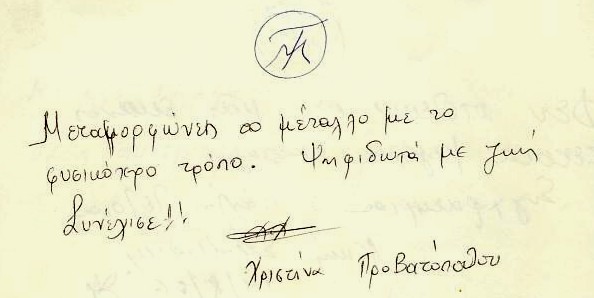 Μεταμορφώνεις το μέταλλο με το
φυσικότερο τρόπο. Ψηφιδωτά με ζωή
Συνέχισε!!
Χριστίνα Προβατόπουλου